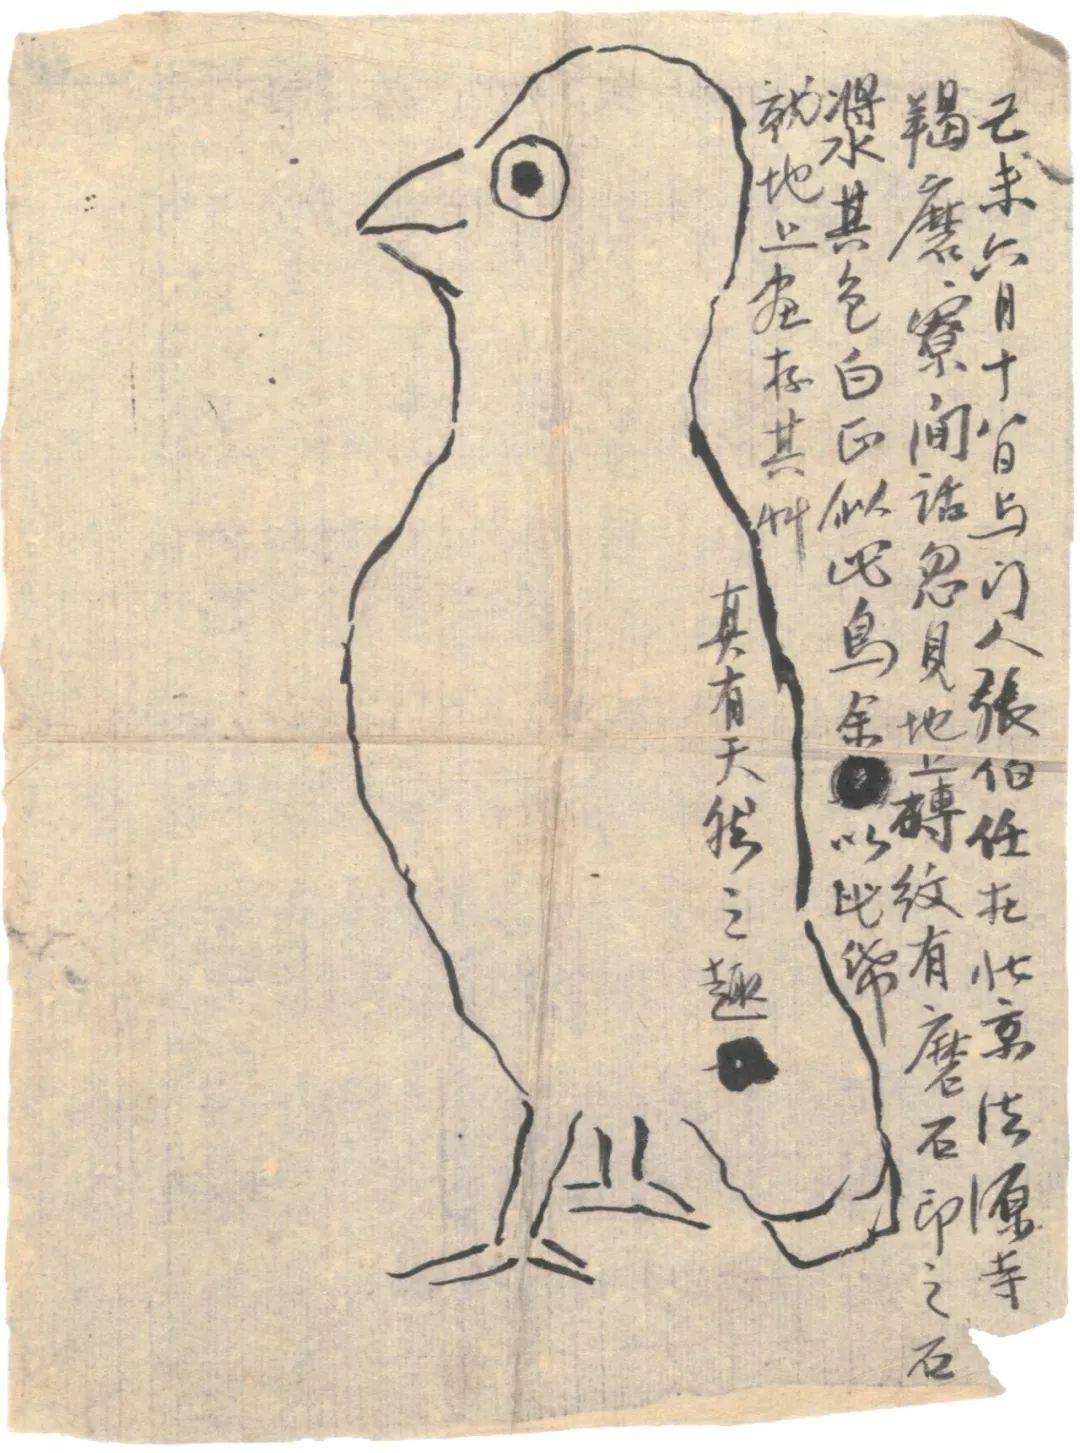 己未六月十八日与门人張伯任在北京法源寺
羯磨寮间話忽見地上磚紋有磨石印之石
浆水其色白正似此鳥余以此紙
就地上画存其草
真有天然之趣